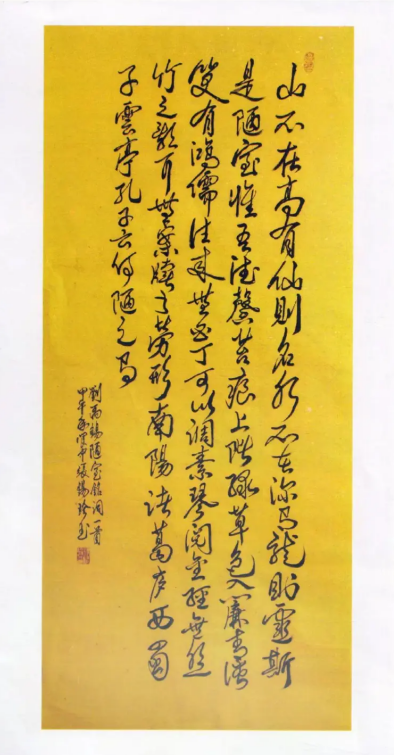 山不在高有仙則名水不在深有龍則靈斯
是陋室惟吾德馨苔痕上階綠草色入簾青談
笑有鴻儒往來無白丁可以調素琴閱金經無絲
竹之亂耳無案牘之勞形南陽諸葛庐西蜀
子雲亭孔子云何陋之有
劉禹錫陋室銘詞一首
甲午 張錫 書